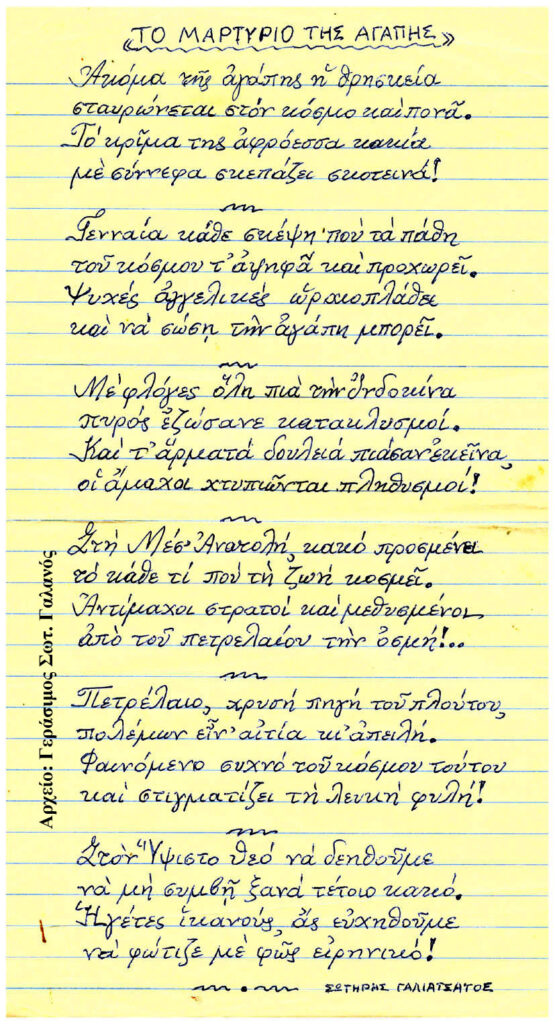 «ΤΟ ΜΑΡΤΥΡΙΟ ΤΗΣ ΑΓΑΠΗΣ»
Ἀκόμα τῆς ἀγάπης ἡ θρησκεία
σταυρώνεται στόν κόσμο καί πονᾶ.
Τό κρῖμα της ἀφρόεσσα κακία
μέ σύννεφα σκεπάζει σκοτεινά!
Γενναία κάθε σκέψη πού τά πάθη
τοῦ κόσμου τ' ἀψηφᾶ καί προχωρεῖ.
Ψυχές ἀγγελικές ὡραιοπλάθει
καί νά σώση τήν ἀγάπη μπορεῖ.
Μέ φλόγες ὅλη πιά τήν Ἰνδοκίνα
πυρός ἐζώσανε κατακλυσμοί.
Καί τ' ἅρματά δουλειά πιάσαν ἐκεῖνα,
οἱ ἄμαχοι χτυπιῶνται πληθυσμοί!
Στή Μέσ' Ἀνατολή, κακό προσμένει
τό κάθε τί πού τή ζωή κοσμεῖ.
Ἀντίμαχοι στρατοί καί μεθυσμένοι
ἀπό τοῦ πετρελαίου τήν ὀσμή!..
Πετρέλαιο, χρυσή πηγή τοῦ πλούτου,
πολέμων εἶν' αἰτία κι' ἀπειλή.
Φαινόμενο συχνό τοῦ κόσμου τούτου
καί στιγματίζει τή λευκή φυλή!
Στόν Ὕψιστο θεό νά δεηθοῦμε
νά μή συμβῆ ξανά τέτοιο κακό.
Ἡγέτες ἱκανούς, ἄς εὐχηθοῦμε
νά φώτιζε μέ φῶς εἰρηνικό!
ΣΩΤΗΡΗΣ ΓΑΛΙΑΤΣΑΤΟΣ
Αρχείο: Γεράσιμος Σωτ. Γαλανός